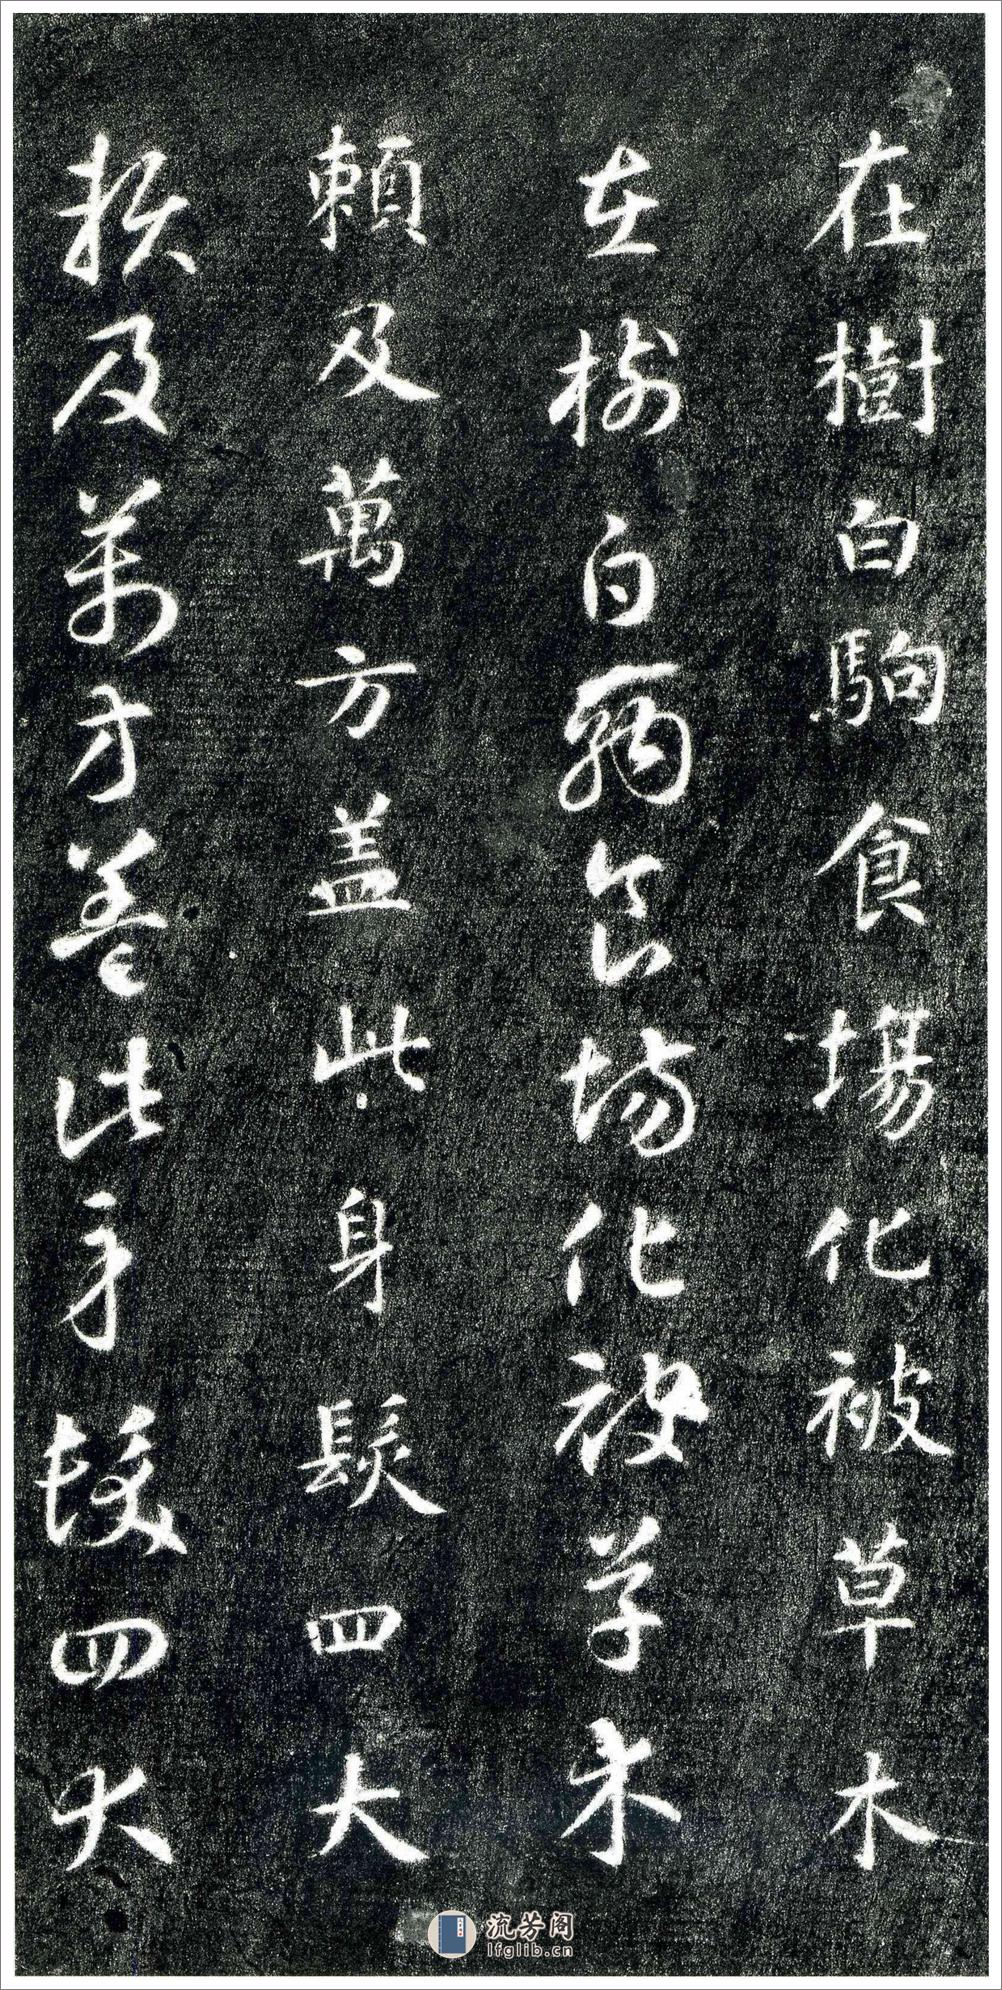 在樹白駒食場化被草木
在樹白駒食場化被草木
賴及萬方盖此身髮四大
賴及萬方盖此身髮四大
流芳阁
lfglib.cn